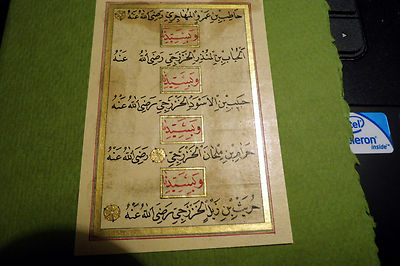 حاطب بن عمرو المهاجري رضي الله عنه
وبسيدنا
الحباب بن المنذر الخزرجي رضي الله عنه
وبسيدنا
حبيب بن الاسود الخزرجي رضي الله عنه
وبسيدنا
حرام بن ملحان الخزرجي رضي الله عنه
وبسيدنا
حريث بن زيد الخزرجي رضي الله عنه
intel
eleron
inside